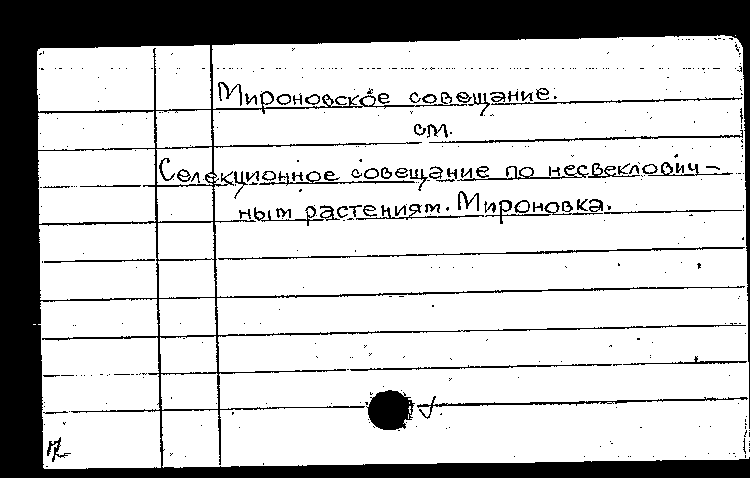 Мироновское совещание.
см.
Селекционное совещание по несвеклович-
ным растениям. Мироновка.